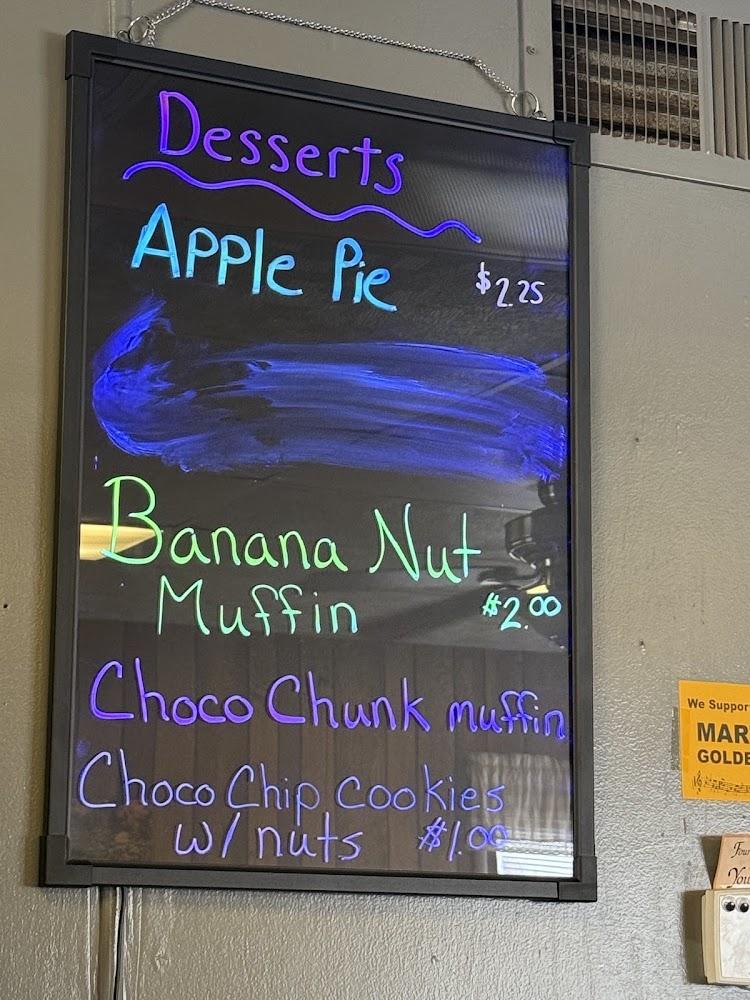 Desserts
Apple Pie $2.25
Banana Nut
Muffin $2.00
Choco Chunk muffin
Choco Chip Cookies
w/ nuts $1.00
We Suppor
MAR
GOLDE
You